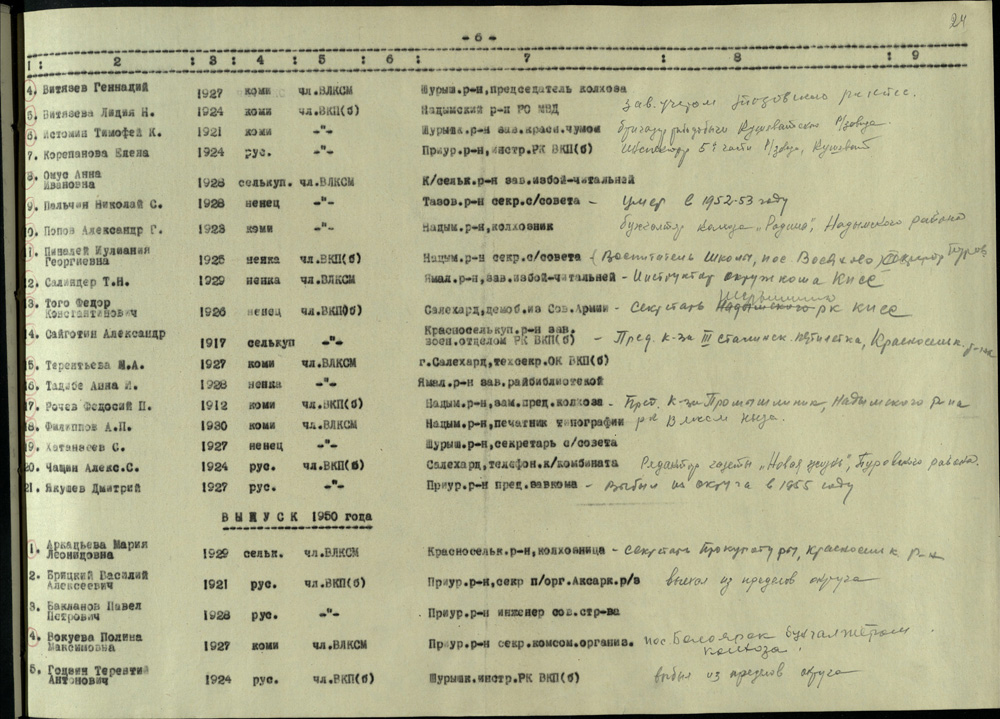 24
- 6 -
1 : 2 : 3 : 4 : 5 : 6 : 7 : 8 : 9
4. Витязев Геннадий 1927 коми чл.ВЛКСМ Шурыш.р-н,председатель колхоза
5. Витязева Лидия Н. 1924 коми чл.ВКП(б) Надымский р-н РО МВД зав. учетом
6. Истомин Тимофей К. 1921 коми -"- Шурышк.р-н зав.красн.чумом
7. Корепанова Елена 1924 рус. -"- Приур.р-н,инстр.РК ВКП(б)
8. Омус Анна
Ивановна 1928 селькуп. чл.ВЛКСМ К/сельк.р-н зав.избой-читальней
9. Пальчин Николай С. 1928 ненец -"- Тазов.р-н секр.с/совета - Умер в 1952-53 году
10. Попов Александр Г. 1928 коми -"- Надым.р-н,колхозник бухгалтер колхоза „Родина", Надымского района
11. Пиналей Иулиания
Георгиевна 1925 ненка чл.ВКП(б) Надым.р-н секр.с/совета (Воспитатель школы, пос.
12. Салиндер Т.Н. 1929 ненка чл.ВЛКСМ Ямал.р-н,зав.избой-читальней - Инструктор окружкома КПСС
13. Того Федор
Константинович 1926 ненец чл.ВКП(б) Салехард,демоб.из Сов.Армии - секретарь Надымского рк КПСС
14. Сайготин Александр
1917 селькуп -"- Красноселькуп.р-н зав.
воен.отделом РК ВКП(б) - Пред. к-за III сталинск. пятилетка, Красноселк. р-на
15. Терентьева М.А. 1927 коми чл.ВЛКСМ г.Салехард,техсекр.ОК ВКП(б)
16. Тадибе Анна И. 1928 ненка -"- Ямал.р-н зав.райбиблиотекой
17. Рочев Федосий П. 1912 коми чл.ВКП(б) Надым.р-н,зам.пред.колхоза - Пред. к-за Промышленник, Надымского р-на
18. Филиппов А.П. 1930 коми чл.ВЛКСМ Надым.р-н,печатник типографии рк ВЛКСМ
19. Хатанзеев С. 1927 ненец -"- Шурыш.р-н,секретарь с/совета
20. Чащин Алекс.С. 1924 рус. чл.ВКП(б) Салехард,телефон.к/комбината Редактор газеты „Новая жизнь", Пуровского района.
21. Якушев Дмитрий 1927 рус. -"- Приур.р-н пред.завкома - выбыл из округа в 1955 году
ВЫПУСК 1950 года
1. Аркадьева Мария
Леонидовна 1929 сельк. чл.ВЛКСМ Красносельк.р-н,колхозница - секретарь Прокуратуры, Красноселк р-н
2. Брицкий Василий
Алексеевич 1921 рус. чл.ВКП(б) Приур.р-н,секр п/орг.Аксарк.р/з выехал из пределов округа
3. Бакланов Павел
Петрович 1928 рус. -"- Приур.р-н инженер сов.стр-ва
4. Вокуева Полина
Максимовна 1927 коми чл.ВЛКСМ Приур.р-н секр.комсом.организ. пос. Белоярск бухгалтером
колхоза.
5. Годвин Терентий
Антонович 1924 рус. чл.ВКП(б) Шурышк.инстр.РК ВКП(б) выбыл из пределов округа